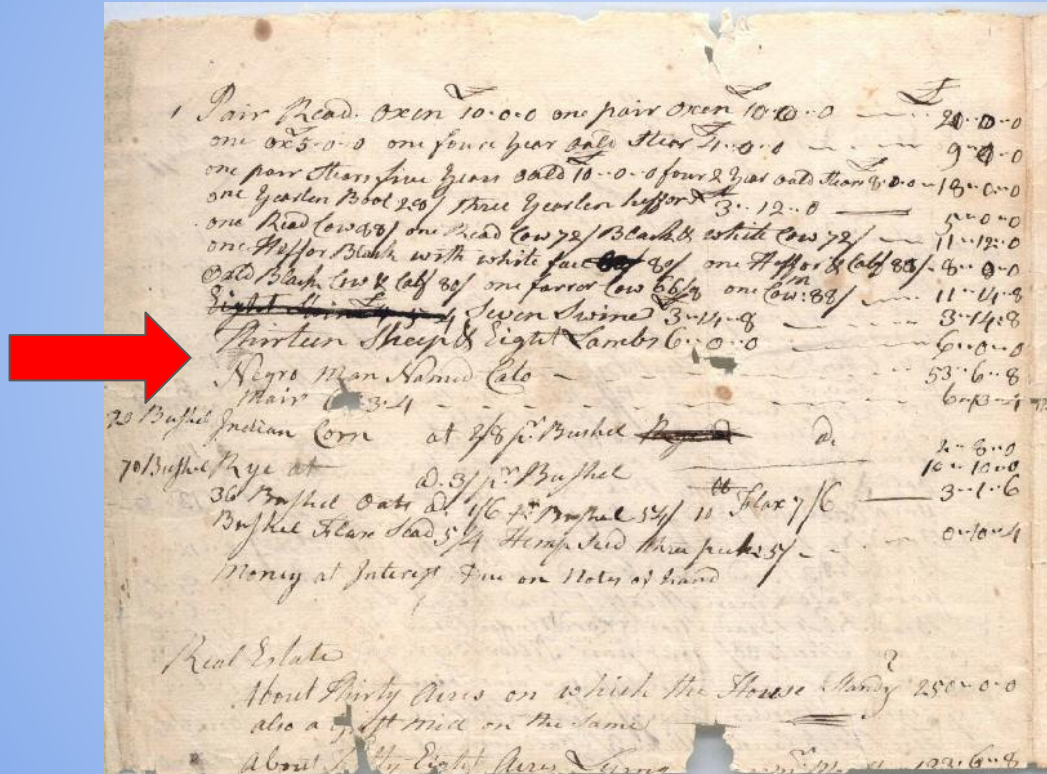 1 Pair Read oxen £10-0-0 one pair oxen 10-10-0 — £ 20-0-0
one ox 5-0-0 one four year oald Stear £4-0-0 — 9-0-0
one pair Stears five Years oald £10-0-0 four 2 Year oald Stears £8-0-0 - 18-0-0
one Yearlen Bool 28/ three Yearlen heffors £3-12-0 — 5-0-0
one Read Cow 88/ one Read Cow 72/ Black & white Cow 72/ — 11-12-0
one Heffor Black with white face 80/ one Heffor & Calf 80/ - 8-0-0
oald Black Cow & Calf 80/ one farror Cow 66/8 one Cow: 88/ — 11-14-8
Eight Swine 4-5-4 Seven Swine £3-14-8 — 3-14-8
Thirteen Sheep & Eight Lambs 6-0-0 — 6-0-0
Negro Man Named Cato — 53-6-8
Mair 3-4 —
20 Bushel Indian Corn at 2/8 pr Bushel d. 2-8-0
70 Bushel Rye at d. 3/ pr Bushel — 10-10-0
36 Bushel Oats d. 1/6 pr Bushel 54/ 11 lb Flax 7/6 — 3-1-6
Bushel Flax Sead 5/4 Hemp Seed three pecks 5/ — 0-10-4
Money at Interest Due on Notes of hand
Real Estate
About Thirty Acres on which the House Stands 250-0-0
also a Grist Mill on the same
About Eight Acres Lying 122-6-8